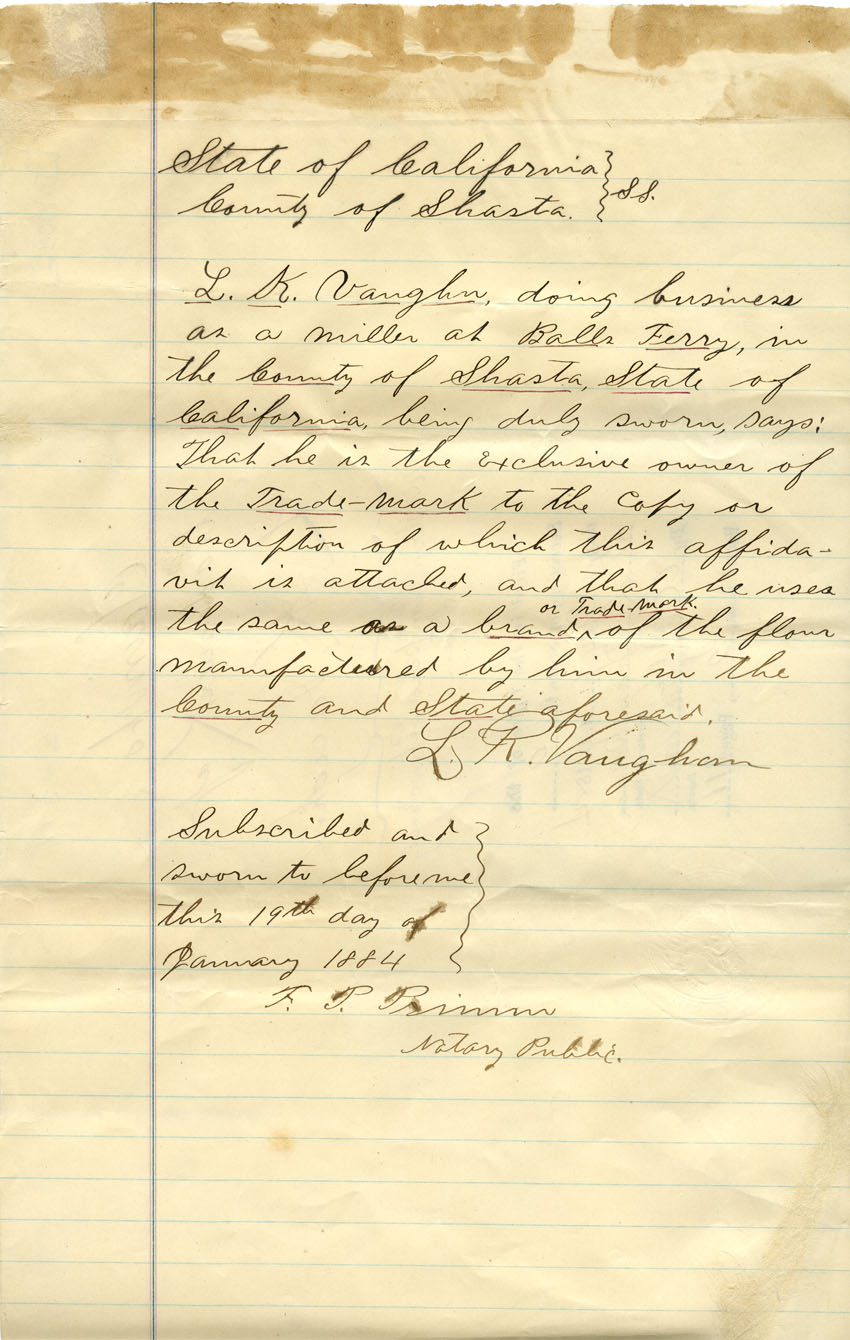 State of California } SS.
County of Shasta. }
L. K. Vaughn, doing business
as a miller at Balls Ferry, in
the County of Shasta, State of
California, being duly sworn, says:
That he is the Exclusive owner of
the Trade-mark to the Copy or
description of which this affida-
vit is attached, and that he uses
or Trade-mark.
the same as a brand ‸ of the flour
manufactured by him in the
County and State aforesaid.
L. K. Vaughan
Subscribed and }
sworn to before me
this 19th day of
January 1884
F. P. Primm
Notary Public.